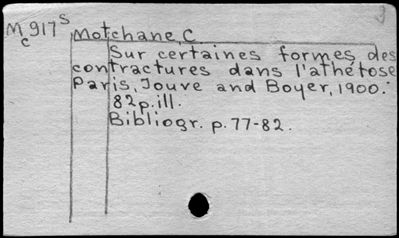 Mc917s
Motchane, C.
Sur certaines formes des
contractures dans l'athétose
Paris, Jouve and Boyer, 1900.
82p. ill.
Bibliogr. p. 77-82.